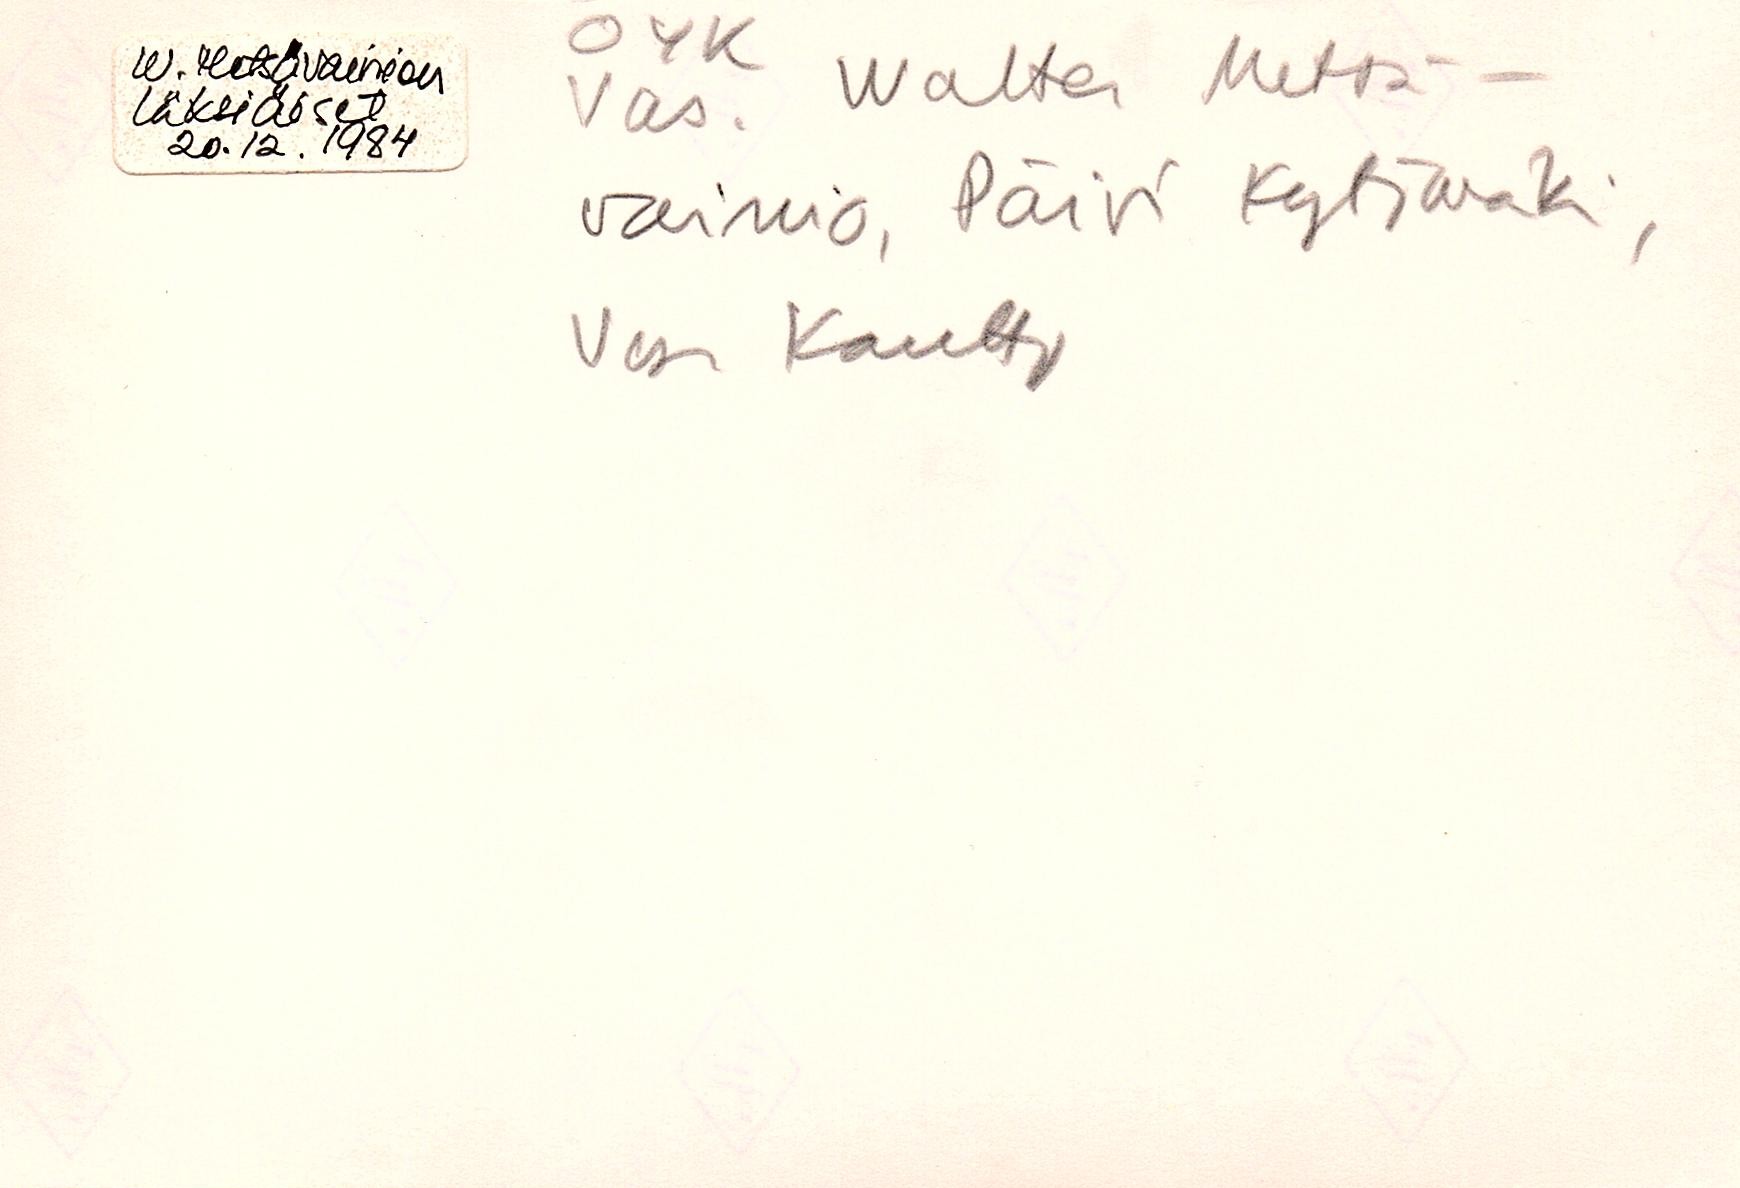 W. Metsävainion
läksiäiset
20.12.1984
OYK
Vas. Walter Metsä-
vainio, Päivi Kytömäki,
Vesa Kautto